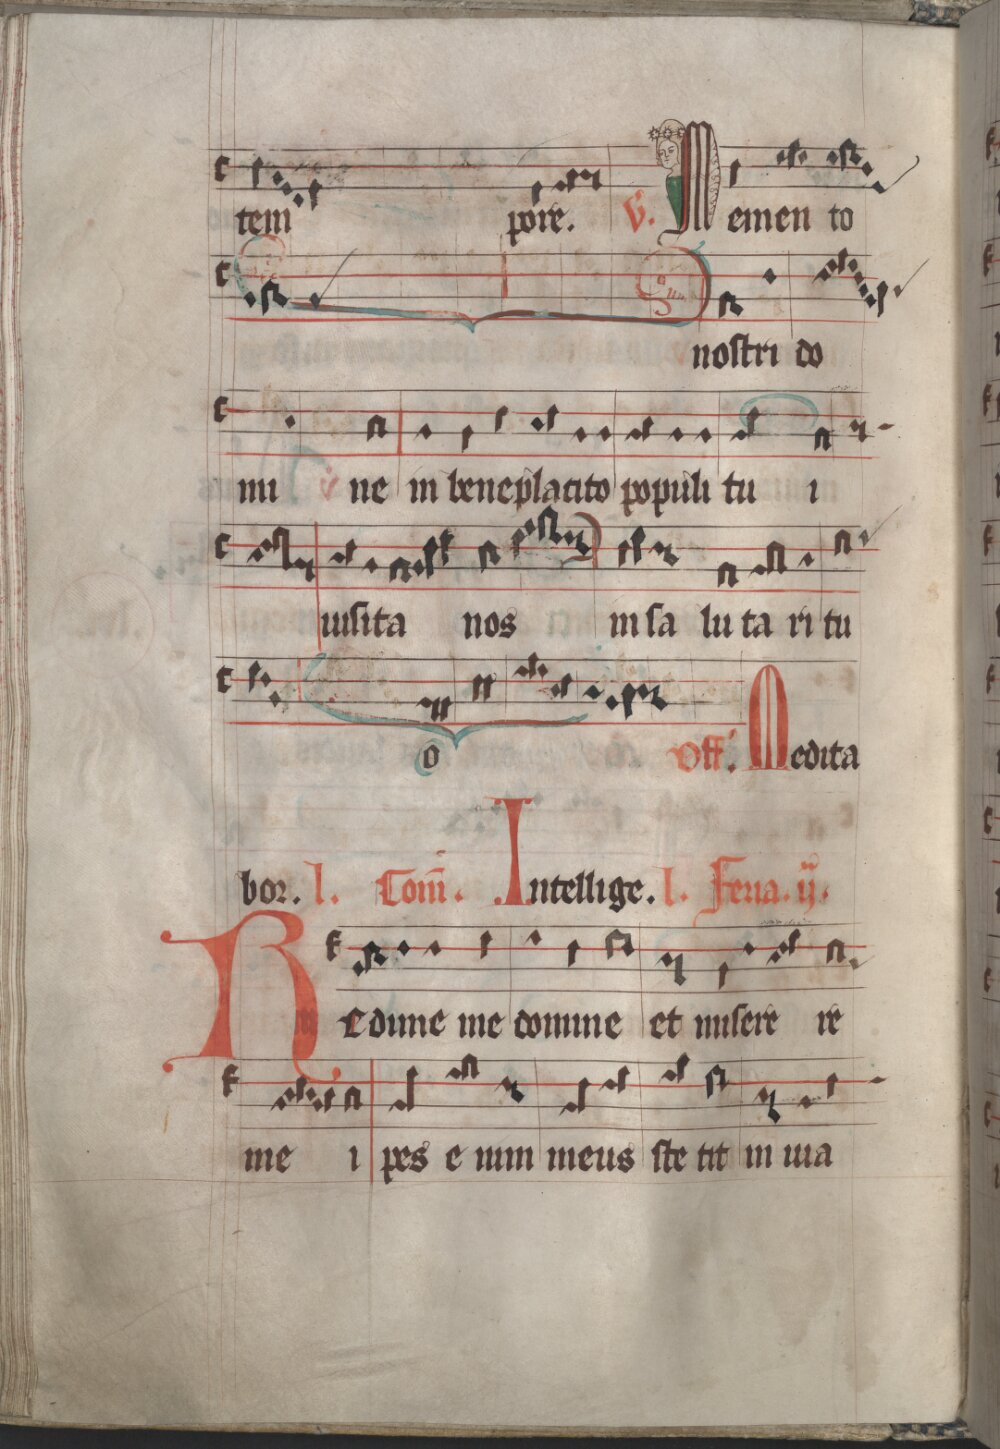 tem pore. V. Memen to
nostri do
mi ne in beneplacito populi tu i
uisita nos in sa lu ta ri tu
o Off. Medita
bor. l. Com̄. Intellige. l. Feria. ij.
Redime me domine et misere re
me i pes e nim meus ste tit in uia